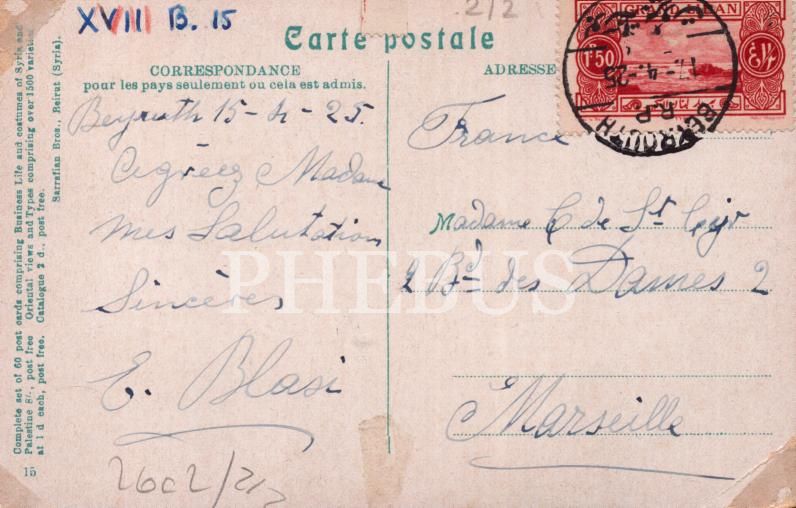 XVIII B. 15
2/2
Carte postale
CORRESPONDANCE
pour les pays seulement ou cela est admis.
ADRESSE
GRAND LIBAN
1P50
BEYROUTH
R.P
-4-25
Beyrouth 15-4-25.
Agréez Madame
mes Salutation
Sincères
E. Blasi
France
Madame C de St Cyr
2 Bd des Dames 2
Marseille
PHEBUS
Complete set of 60 post cards comprising Business Life and costumes of Syria and
Palestine 8/-, post free Oriental views and Types comprising over 1500 varieties
at 1 d each, post free. Catalogue 2 d., post free.
Sarrafian Bros., Beirut (Syria).
15